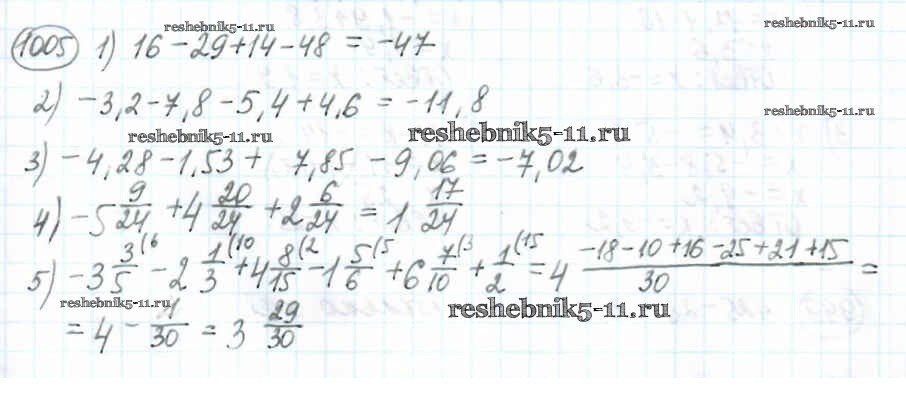 reshebnik5-11.ru
reshebnik5-11.ru
1005 1) 16 - 29 + 14 - 48 = -47
2) -3,2 - 7,8 - 5,4 + 4,6 = -11,8
reshebnik5-11.ru
reshebnik5-11.ru
reshebnik5-11.ru
3) -4,28 - 1,53 + 7,85 - 9,06 = -7,02
4) -5 9/24 + 4 20/24 + 2 6/24 = 1 17/24
5) -3 3/5 (6 - 2 1/3 (10 + 4 8/15 (2 - 1 5/6 (5 + 6 7/10 (3 + 1/2 (15 = 4 -18-10+16-25+21+15/30 =
reshebnik5-11.ru
reshebnik5-11.ru
= 4 - 1/30 = 3 29/30